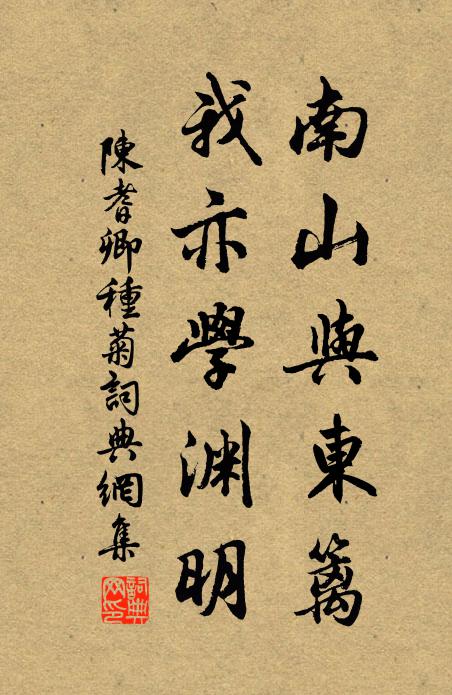 南山與東籬
我亦學淵明
陳耆卿種菊詞典網集
詞典网印